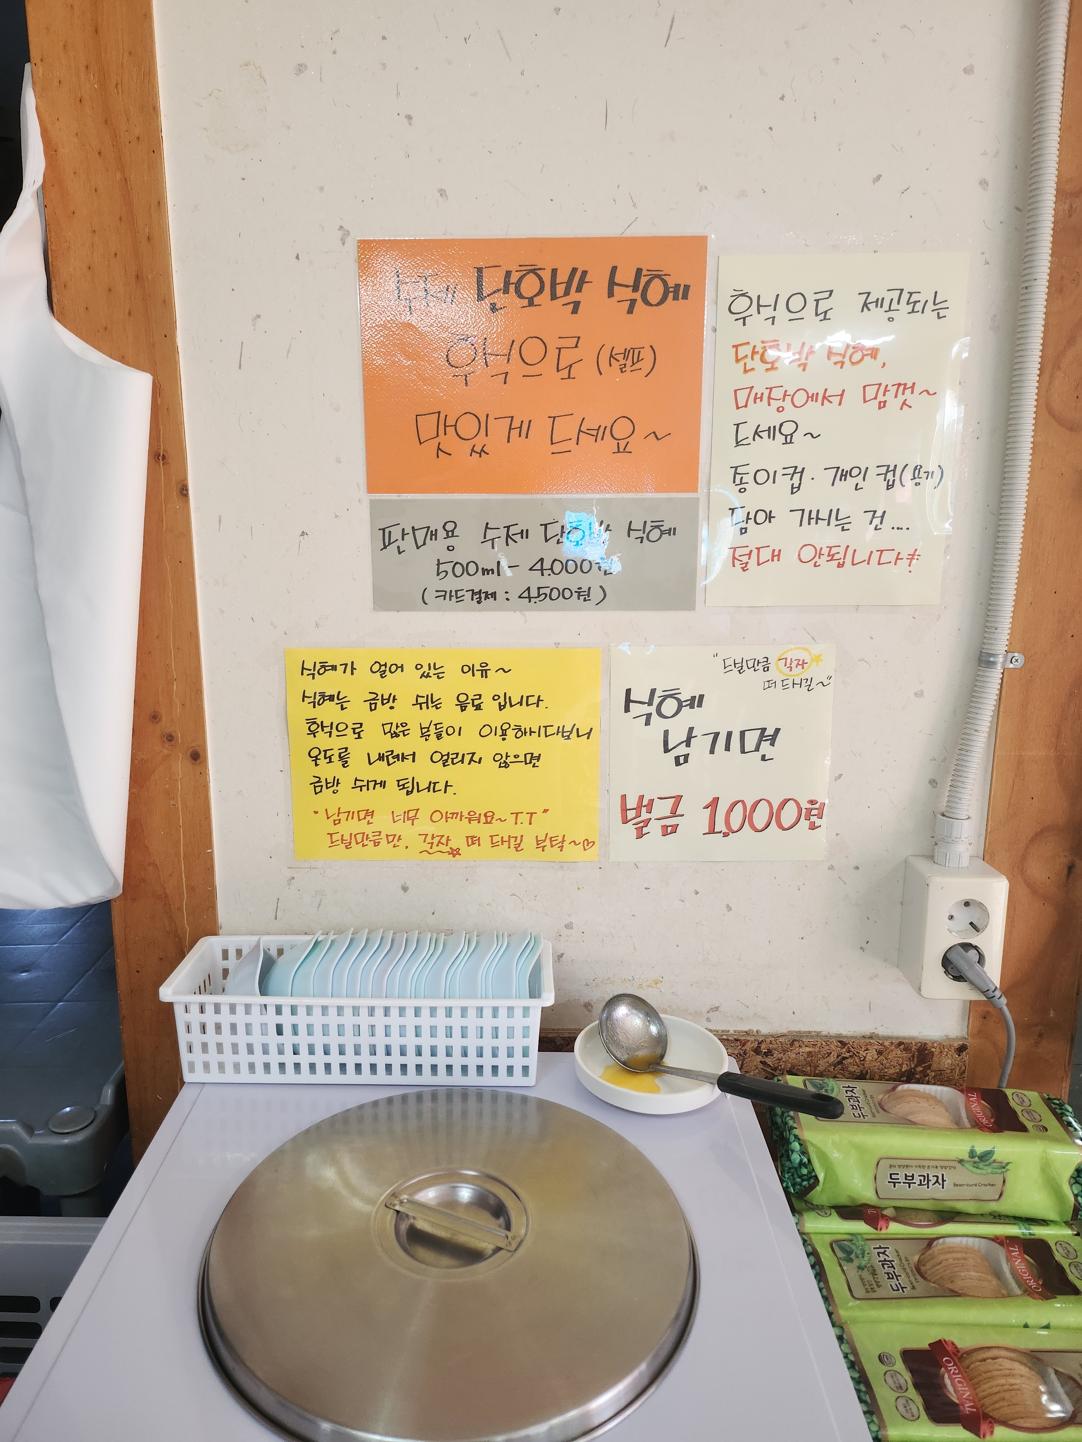 수제 단호박 식혜
후식으로 (셀프)
맛있게 드세요~
판매용 수제 단호박 식혜
500ml - 4.000원
(카드결제 : 4,500원)
후식으로 제공되는
단호박 식혜,
매장에서 맘껏~
드세요~
종이컵. 개인컵(용기)
담아 가시는 건....
절대 안됩니다#
식혜가 얼어 있는 이유~
식혜는 금방 쉬는 음료 입니다.
후식으로 많은 분들이 이용하시다보니
온도를 내려서 얼리지 않으면
금방 쉬게 됩니다.
"남기면 너무 아까워요~T.T"
드실만큼만, 각자 떠 드시길 부탁~♡
"드실만큼 각자
떠 드시길~"
식혜
남기면
벌금 1,000원
두부과자
ORIGINAL
두부과자
Bean-curd Cracker
두부과자
ORIGINAL
ORIGINAL